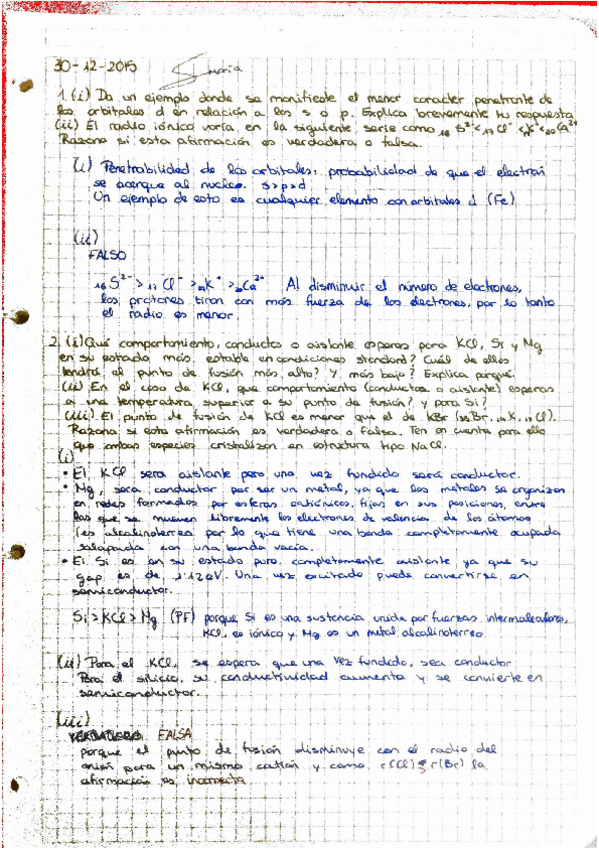 30-12-2015
1. (i) Da un ejemplo donde se manifieste el menor caracter penetrante de
los orbitales d en relación a los s o p. Explica brevemente tu respuesta
(ii) El radio iónico varía, en la siguiente serie como ₁₆S²⁻<₁₇Cl⁻<₁₉K⁺<₂₀Ca²⁺
Razona si esta afirmación es verdadera o falsa.
(i) Penetrabilidad de los orbitales: probabilidad de que el electrón
se acerque al nucleo. s>p>d
Un ejemplo de esto es cualquier elemento con orbitales d (Fe)
(ii)
FALSO
₁₆S²⁻>₁₇Cl⁻>₁₉K⁺>₂₀Ca²⁺ Al disminuir el número de electrones,
los protones tiran con más fuerza de los electrones, por lo tanto
el radio es menor.
2. (i) Qué comportamiento, conductor o aislante esperas para KCl, Si y Mg
en su estado más estable en condiciones standard? Cuál de ellos
tendrá el punto de fusión más alto? Y más bajo? Explica porqué.
(ii) En el caso de KCl, que comportamiento (conductor o aislante) esperas
a una temperatura superior a su punto de fusión? y para Si?
(iii) El punto de fusión de KCl es menor que el de KBr (₃₅Br, ₁₉K, ₁₇Cl).
Razona si esta afirmación es verdadera o falsa. Ten en cuenta para ello
que ambas especies cristalizan en estructura tipo NaCl.
(i)
• El KCl sera aislante pero una vez fundido será conductor.
• Mg, sera conductor por ser un metal, ya que los metales se organizan
en redes formados por esferas catiónicas fijas en sus posiciones, entre
las que se mueven libremente los electrones de valencia de los átomos
(es alcalinoterreo por lo que tiene una banda completamente ocupada
solapada con una banda vacía.
• El Si es en su estado puro completamente aislante ya que su
gap es de 1'12eV. Una vez excitado puede convertirse en
semiconductor.
Si>KCl>Mg (PF) porque Si es una sustancia unida por fuerzas intermoleculares,
KCl, es iónico y Mg es un metal alcalinoterreo
(ii) Para el KCl, se espera que una vez fundido, sea conductor
Para el silicio, su conductividad aumenta y se convierte en
semiconductor.
(iii)
VERDADERO FALSA
porque el punto de fusión disminuye con el radio del
anión para un mismo catión y como r(Cl)<r(Br) la
afirmación es incorrecta